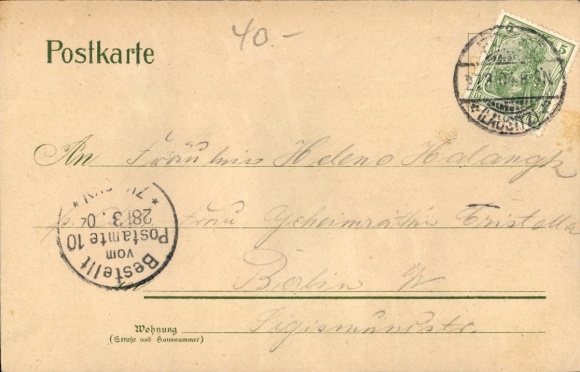 Postkarte
40.-
5
(LAUSITZ)
An Fräulein Helene
Frau Geheimräthin
Berlin W
Sigismundstr.
Wohnung
(Straße und Hausnummer)
Bestellt
vom
Postamte 10
28/3. 04